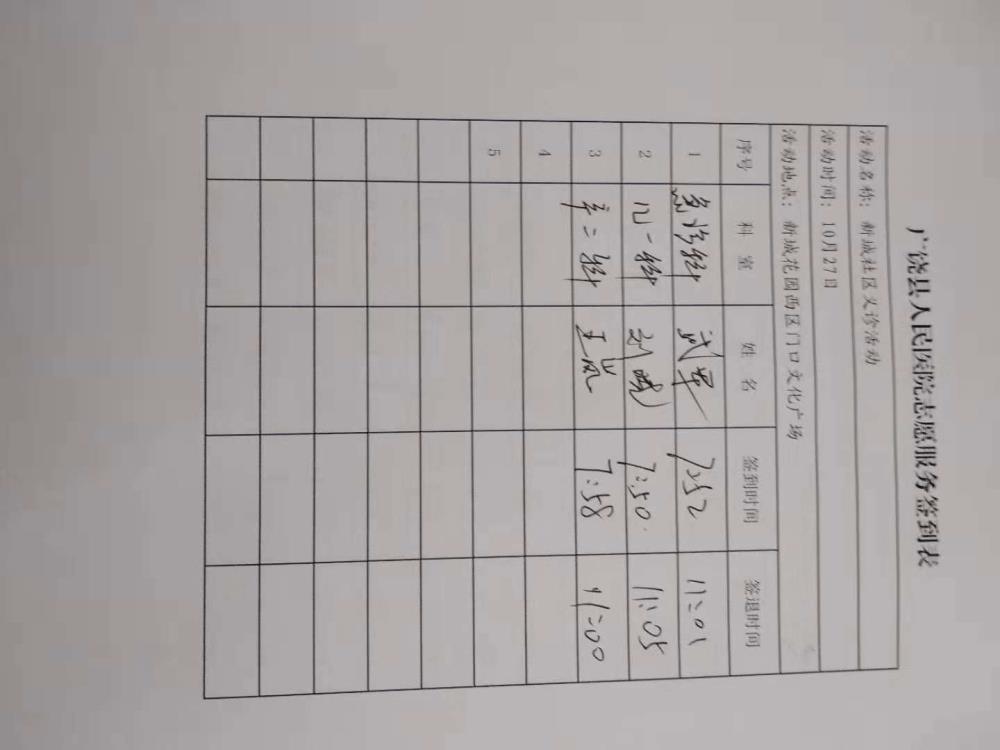 广饶县人民医院志愿服务签到表
活动名称：新城社区义诊活动
活动时间：10月27日
活动地点：新城花园西区门口文化广场
序号 科室 姓名 签到时间 签退时间
1 急诊科 武军 7:52 11:01
2 儿一科 刘 7:50 11:05
3 二科 王岚 7:58 11:00
4
5